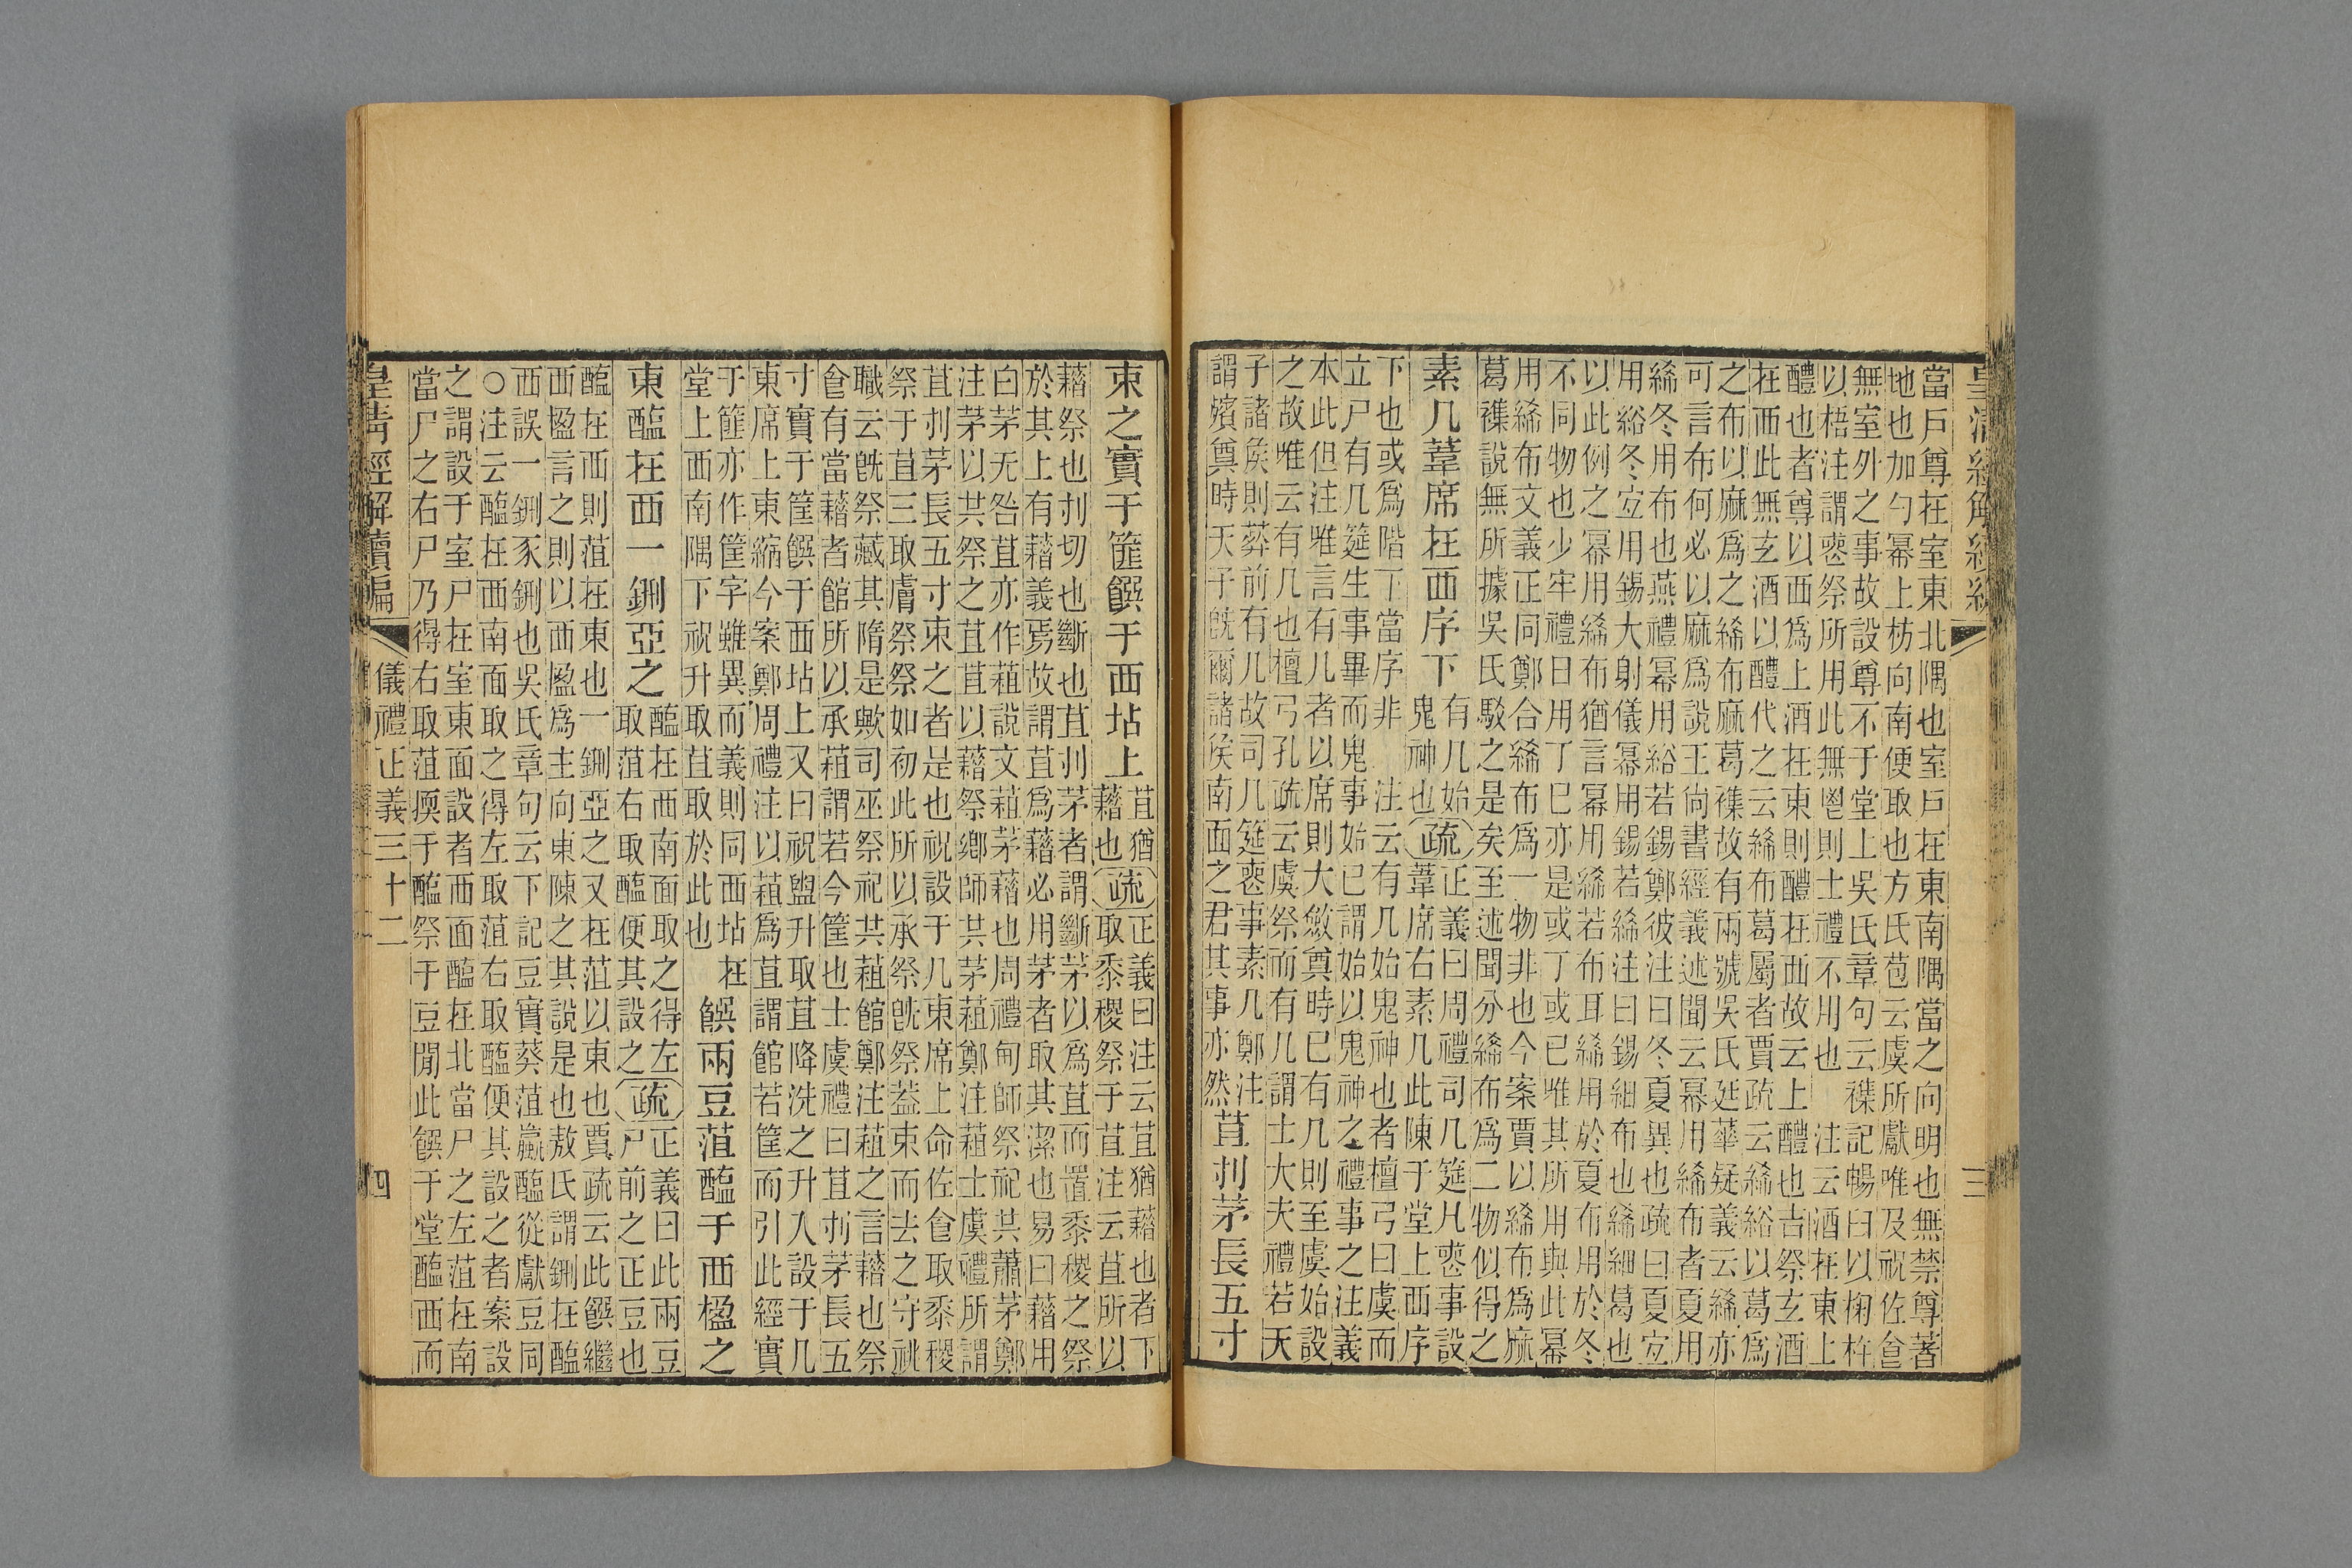 當戶尊在室東北隅也室戶在東南隅當之向明也無禁尊著
地也加勺冪上枋向南便取也方氏苞云虞所獻唯及祝佐食
無室外之事故設尊不于堂上吳氏章句云襍記暢臼以椈杵
以梧注謂喪祭所用此無鬯則士禮不用也　注云酒在東上
醴也者尊以西爲上酒在東則醴在西故云上醴也古祭玄酒
在西此無玄酒以醴代之云絺布葛屬者賈疏云絺綌以葛爲
之布以麻爲之絺布麻葛襍故有兩號吳氏廷華疑義云絺亦
可言布何必以麻爲說王尚書經義述聞云冪用絺布者夏用
絺冬用布也燕禮冪用綌若錫鄭彼注曰冬夏異也疏曰夏宜
用綌冬宜用錫大射儀冪用錫若絺注曰錫細布也絺細葛也
以此例之冪用絺布猶言冪用絺若布耳絺用於夏布用於冬
不同物也少牢禮日用丁巳亦是或丁或巳唯其所用與此冪
用絺布文義正同鄭合絺布爲一物非也今案賈以絺布爲麻
葛襍說無所據吳氏駁之是矣至述聞分絺布爲二物似得之
素几葦席在西序下
有几始
鬼神也
疏
正義曰周禮司几筵凡喪事設
葦席右素几此陳于堂上西序
下也或爲階下當序非　注云有几始鬼神也者檀弓曰虞而
立尸有几筵生事畢而鬼事始已謂始以鬼神之禮事之注義
本此但注唯言有几者以席則大斂奠時已有几則至虞始設
之故唯云有几也檀弓孔疏云虞祭而有几謂士大夫禮若天
子諸侯則葬前有几故司几筵喪事素几鄭注
謂殯奠時天子旣爾諸侯南面之君其事亦然
苴刌茅長五寸
束之實于篚饌于西坫上
苴猶
藉也
疏
正義曰注云苴猶藉也者下
取黍稷祭于苴注云苴所以
藉祭也刌切也斷也苴刌茅者謂斷茅以爲苴而置黍稷之祭
於其上有藉義焉故謂苴爲藉必用茅者取其潔也易曰藉用
白茅无咎苴亦作蒩說文蒩茅藉也周禮甸師祭祀共蕭茅鄭
注茅以共祭之苴苴以藉祭鄉師共茅蒩鄭注蒩士虞禮所謂
苴刌茅長五寸束之者是也祝設于几東席上命佐食取黍稷
祭于苴三取膚祭祭如初此所以承祭旣祭蓋束而去之守祧
職云旣祭藏其隋是歟司巫祭祀共蒩館鄭注蒩之言藉也祭
食有當藉者館所以承蒩謂若今筐也士虞禮曰苴刌茅長五
寸實于筐饌于西坫上又曰祝盥升取苴降洗之升入設于几
東席上東縮今案鄭周禮注以蒩爲苴謂館若筐而引此經實
于篚亦作筐字雖異而義則同西坫在
堂上西南隅下祝升取苴取於此也
饌兩豆菹醢于西楹之
東醢在西一鉶亞之
醢在西南面取之得左
取菹右取醢便其設之
疏
正義曰此兩豆
尸前之正豆也
醢在西則菹在東也一鉶亞之又在菹以東也賈疏云此饌繼
西楹言之則以西楹爲主向東陳之其說是也敖氏謂鉶在醢
西誤一鉶豕鉶也吳氏章句云下記豆實葵菹蠃醢從獻豆同
○注云醢在西南面取之得左取菹右取醢便其設之者案設
之謂設于室尸在室東面設者西面醢在北當尸之左菹在南
當尸之右尸乃得右取菹㨎于醢祭于豆閒此饌于堂醢西而
皇清經解續編
儀禮正義三十二
四